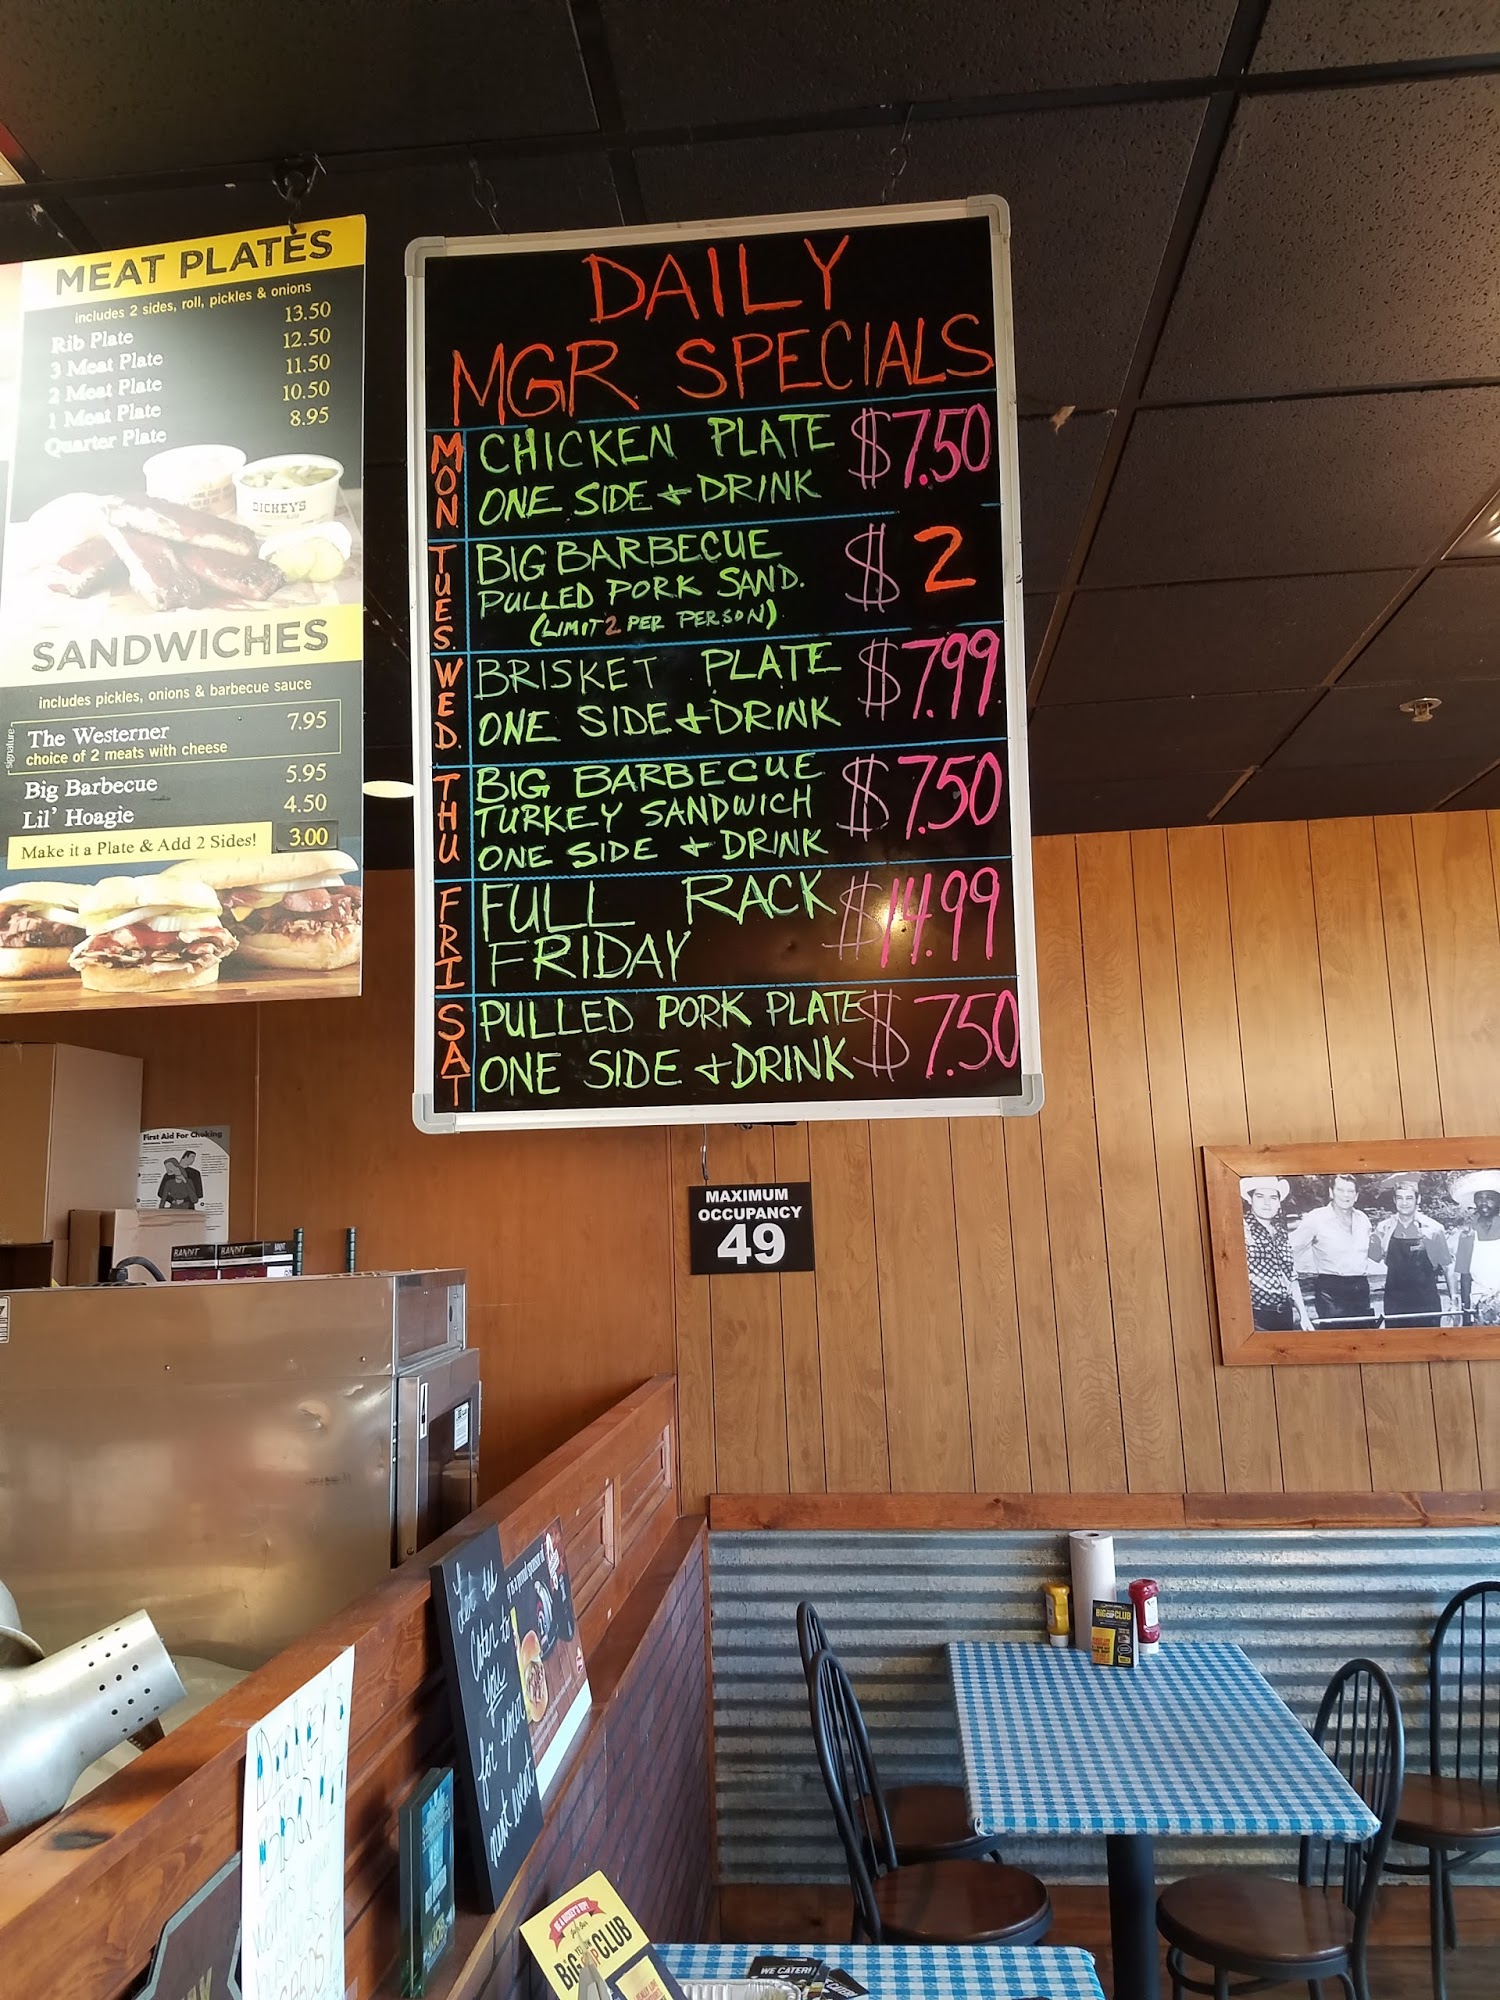 MEAT PLATES
includes 2 sides, roll, pickles & onions
Rib Plate 13.50
3 Meat Plate 12.50
2 Meat Plate 11.50
1 Meat Plate 10.50
Quarter Plate 8.95
DICKEY'S
SANDWICHES
includes pickles, onions & barbecue sauce
signature
The Westerner 7.95
choice of 2 meats with cheese
Big Barbecue 5.95
Lil' Hoagie 4.50
Make it a Plate & Add 2 Sides! 3.00
DAILY
MGR SPECIALS
MON
CHICKEN PLATE $7.50
ONE SIDE + DRINK
TUES.
BIG BARBECUE $2
PULLED PORK SAND.
(LIMIT 2 PER PERSON)
WED.
BRISKET PLATE $7.99
ONE SIDE + DRINK
THU
BIG BARBECUE $7.50
TURKEY SANDWICH
ONE SIDE + DRINK
FRI
FULL RACK $14.99
FRIDAY
SAT
PULLED PORK PLATE $7.50
ONE SIDE + DRINK
First Aid For Choking
BANDIT BANDIT BANDIT
MAXIMUM
OCCUPANCY
49
Let us
Cater to
you
for your
next event!
BIG CLUB
BIG CLUB
WE CATER!